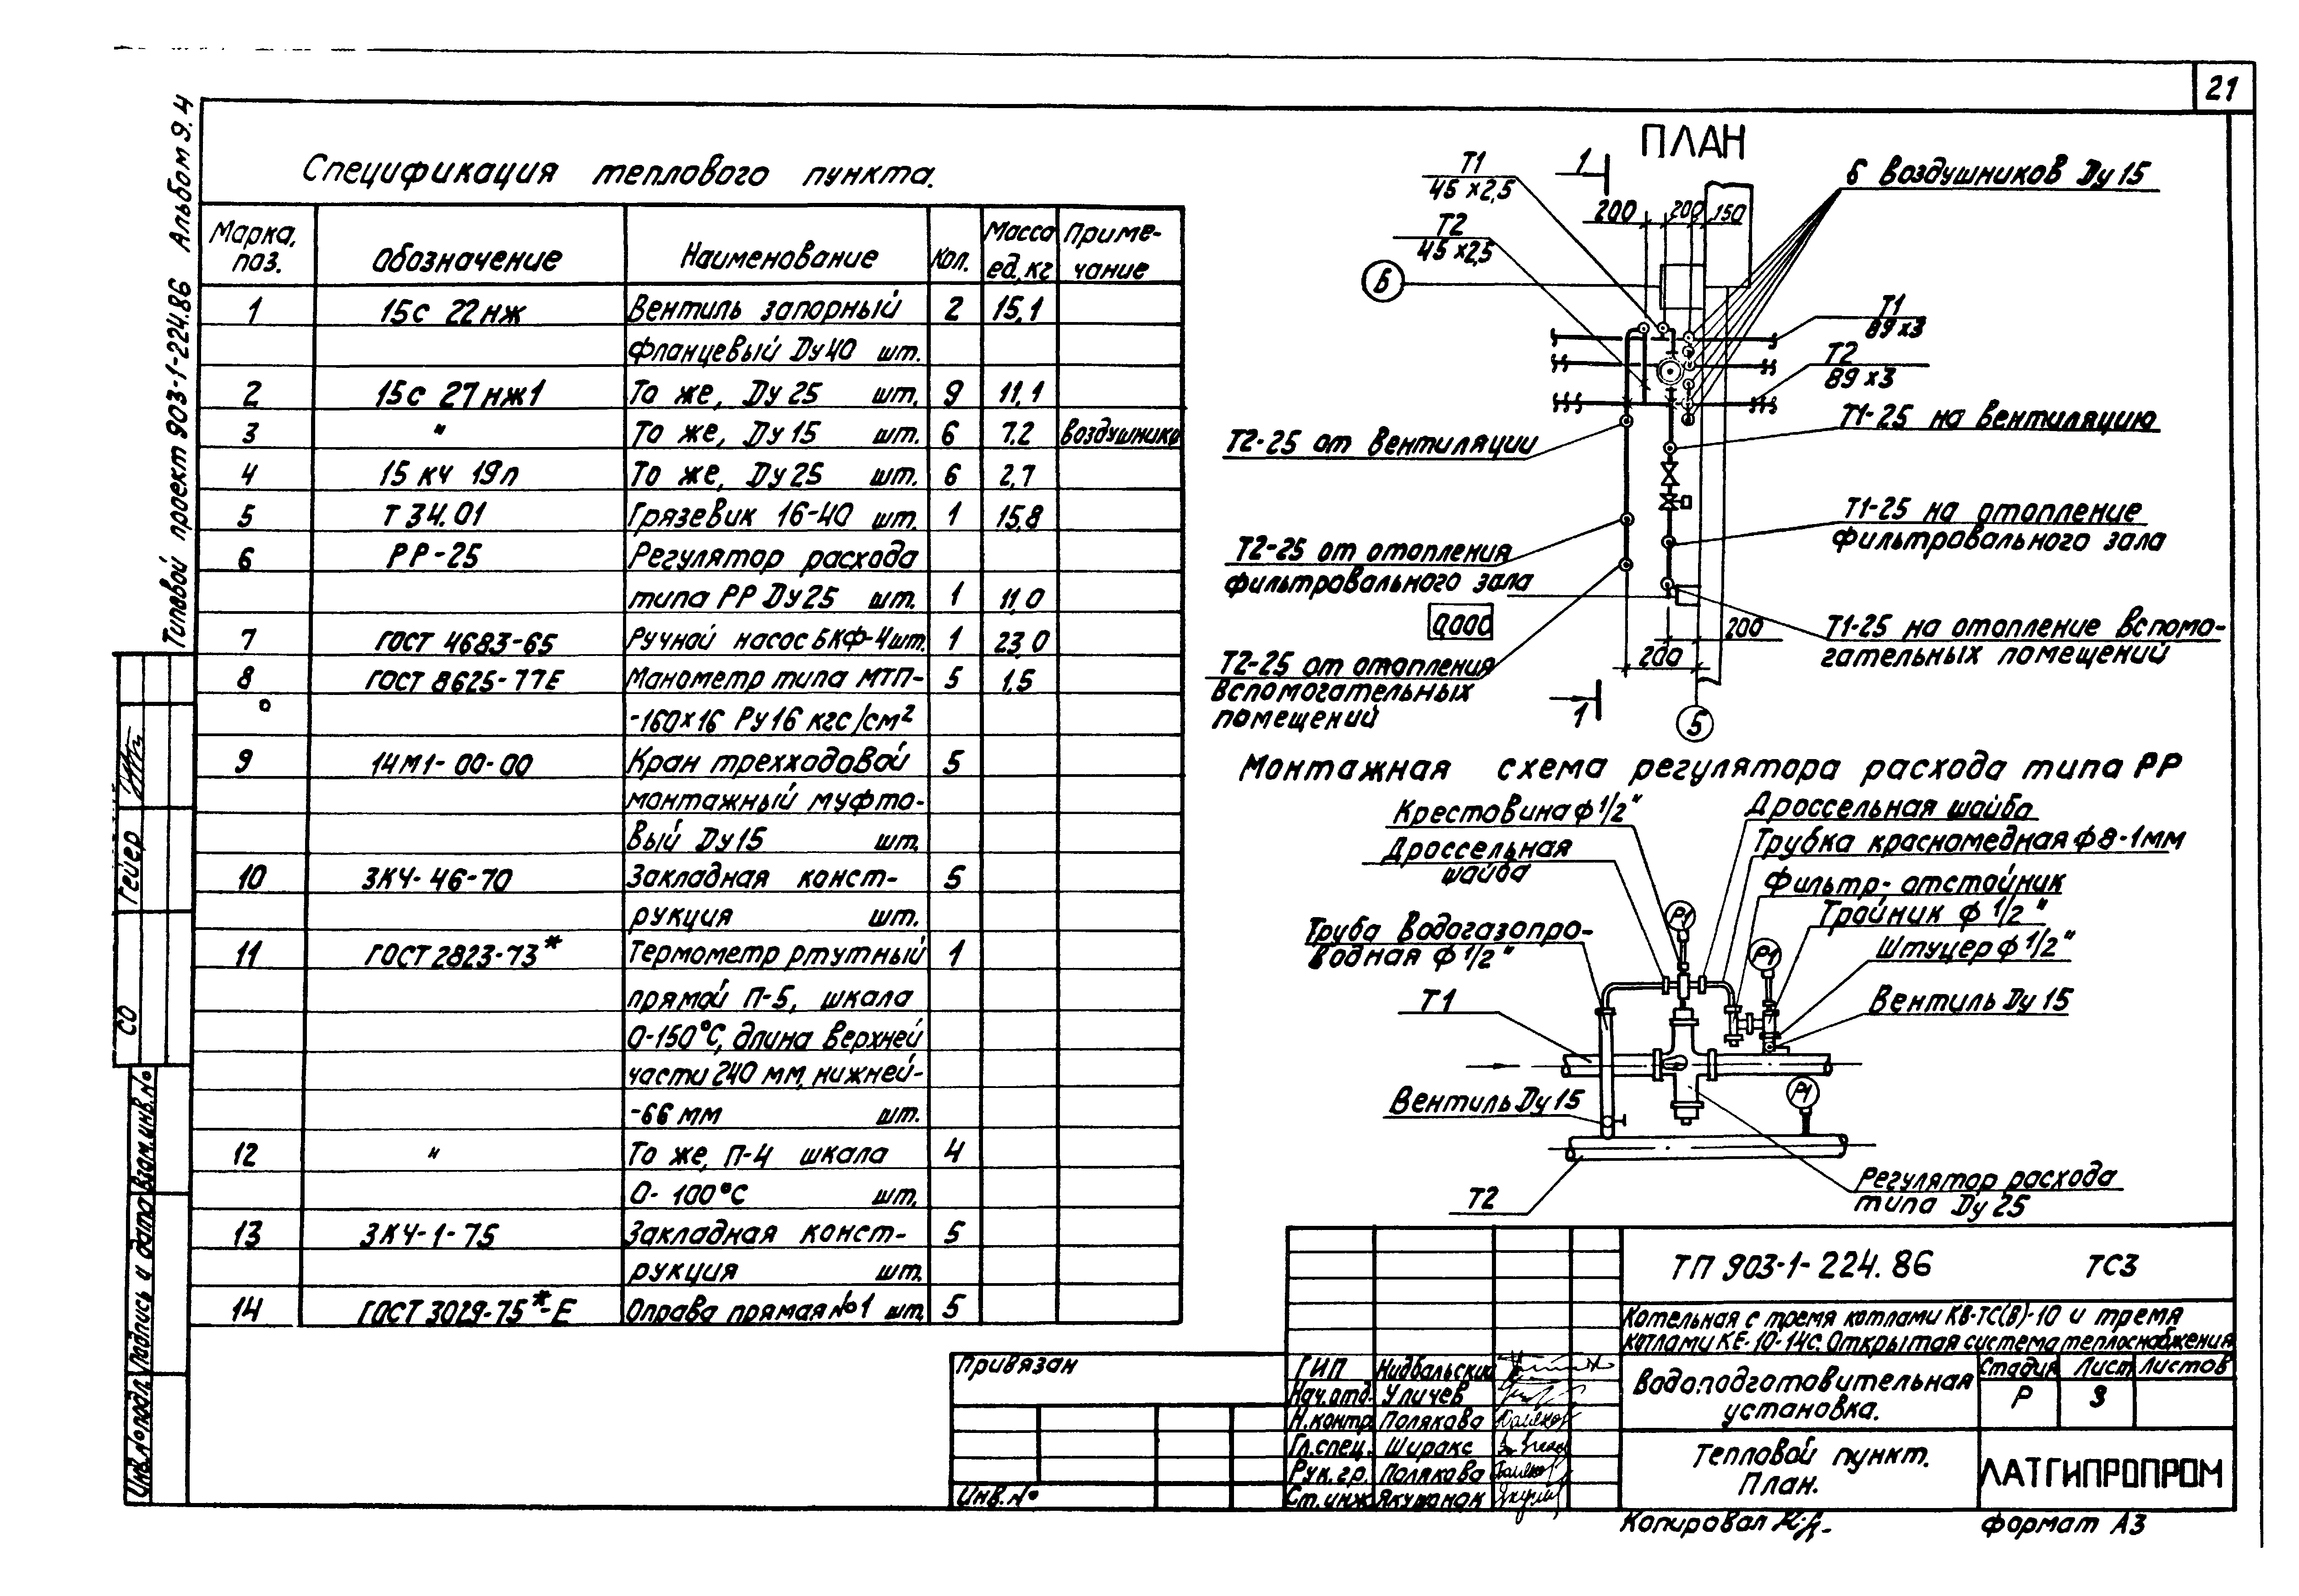 21
Типовой проект 903-1-224.86 Альбом 9.4
Спецификация теплового пункта.
Марка, поз. Обозначение Наименование Кол. Масса ед, кг Приме-чание
1 15с 22нж Вентиль запорный 2 15,1
фланцевый Ду40 шт.
2 15с 27нж1 То же, Ду 25 шт. 9 11,1
3 " То же, Ду 15 шт. 6 7,2 воздушники
4 15 кч 19п То же, Ду 25 шт. 6 2,7
5 Т 34.01 Грязевик 16-40 шт. 1 15,8
6 РР-25 Регулятор расхода
типа РР Ду25 шт. 1 11,0
7 ГОСТ 4683-65 Ручной насос БКФ-4 шт. 1 23,0
8 ГОСТ 8625-77Е Манометр типа МТП- 5 1,5
-160х16 Ру16 кгс/см²
9 14М1-00-00 Кран трехходовой 5
монтажный муфто-
вый Ду15 шт.
10 ЗКЧ-46-70 Закладная конст- 5
рукция шт.
11 ГОСТ 2823-73* Термометр ртутный 1
прямой П-5, шкала
0-150°С, длина верхней
части 240 мм, нижней-
-66 мм шт.
12 " То же, П-4 шкала 4
0-100°С шт.
13 ЗКЧ-1-75 Закладная конст- 5
рукция шт.
14 ГОСТ 3029-75*-Е Оправа прямая №1 шт. 5
ПЛАН
Т1
45х2,5
Т2
45х2,5
1
200 200 150
6 воздушников Ду 15
Б
Т1
89х3
Т2
89х3
Т2-25 от вентиляции
Т1-25 на вентиляцию
Т2-25 от отопления
фильтровального зала
Т1-25 на отопление
фильтровального зала
0,000
Т2-25 от отопления
вспомогательных
помещений
Т1-25 на отопление вспомо-
гательных помещений
200
200
1
5
Монтажная схема регулятора расхода типа РР
Крестовина ф 1/2"
Дроссельная
шайба
Дроссельная шайба
Трубка красномедная ф8-1мм
Фильтр-отстойник
Тройник ф 1/2"
Штуцер ф 1/2"
Вентиль Ду 15
Труба водогазопро-
водная ф 1/2"
Т1
Р1
Р1
Р1
Вентиль Ду 15
Т2
Регулятор расхода
типа Ду 25
ТП 903-1-224.86 ТС3
Котельная с тремя котлами КВ-ТС(В)-10 и тремя
котлами КЕ-10-14С. Открытая система теплоснабжения
Водоподготовительная
установка.
Стадия Лист Листов
Р 3
Тепловой пункт.
План.
ЛАТГИПРОПРОМ
ГИП Нидбальский
Нач.отд. Уличев
Н.контр. Полякова
Гл.спец. Ширакс
Рук.гр. Полякова
Ст.инж.
Привязан
Инв.№
Копировал
Формат А3
Гейер
СО
Взам.инв.№
Подпись и дата
Инв.№подл.